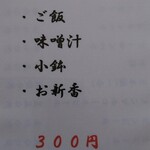 ・ご飯
・味噌汁
・小鉢
・お新香
３００円